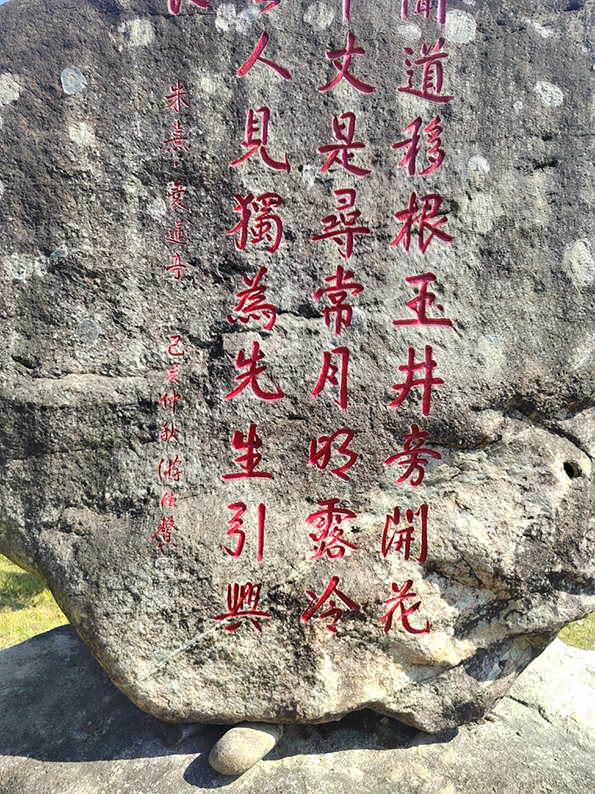 聞道移根玉井旁開花
丈是尋常月明露冷
人見獨為先生引興
朱熹 己亥仲秋